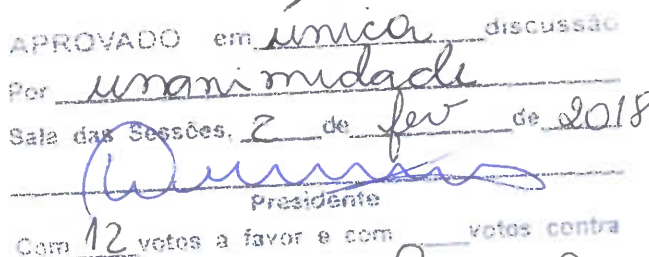 APROVADO em única discussão
Por unanimidade
Sala das Sessões, 2 de fev de 2018
Presidente
Com 12 votos a favor e com ____ votos contra